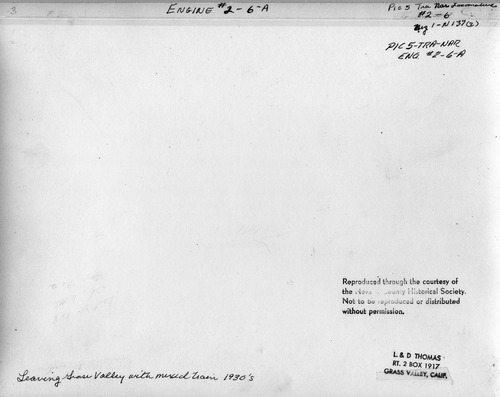 3
ENGINE #2-6-A
PIC 5 Tra Nar Locomotive
#2-6
Neg 1-N137(2)
PIC 5-TRA-NAR
ENG #2-6-A
Reproduced through the courtesy of
the County Historical Society.
Not to be reproduced or distributed
without permission.
L & D THOMAS
RT. 2 BOX 1917
GRASS VALLEY, CALIF.
Leaving Grass Valley with mixed train 1930's